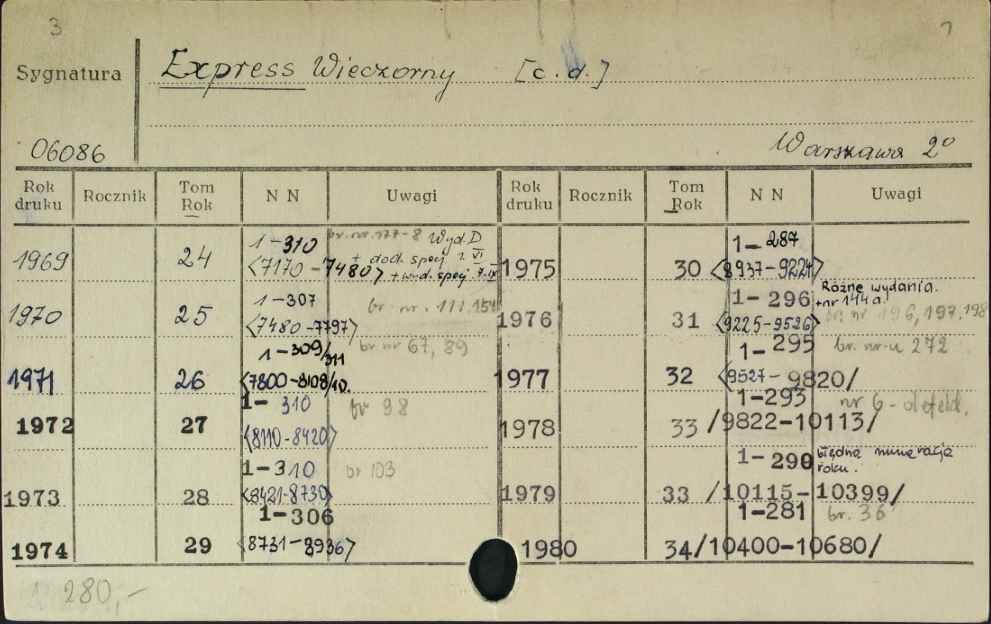 3
Sygnatura
Express Wieczorny [c.d.]
06086
Warszawa 2º
Rok druku Rocznik Tom Rok N N Uwagi Rok druku Rocznik Tom Rok N N Uwagi
1969 24 1-310 <7170-7480> br. nr. 177-8 Wyd. D + dod. specj. 2. VI + wyd. specj.
1970 25 1-307 <7480-7797> br. nr. 111, 154
1971 26 1-309/311 <7800-8108/10. br nr 67, 89
1972 27 1-310 <8110-8420> br 98
1973 28 1-310 <8421-8730> br 103
1974 29 1-306 <8731-8936>
1975 30 1-287 <8937-9224>
1976 31 1-296 <9225-9526> Różne wydania. +nr 144a. br. nr 196, 197, 198
1977 32 1-295 <9527-9820/ br. nr-u 272
1978 33 1-293 /9822-10113/ nr 6 - defekt.
1979 33 1-290 /10115-10399/ błędna numeracja roku.
1980 34 1-281 /10400-10680/ br. 36
280,-